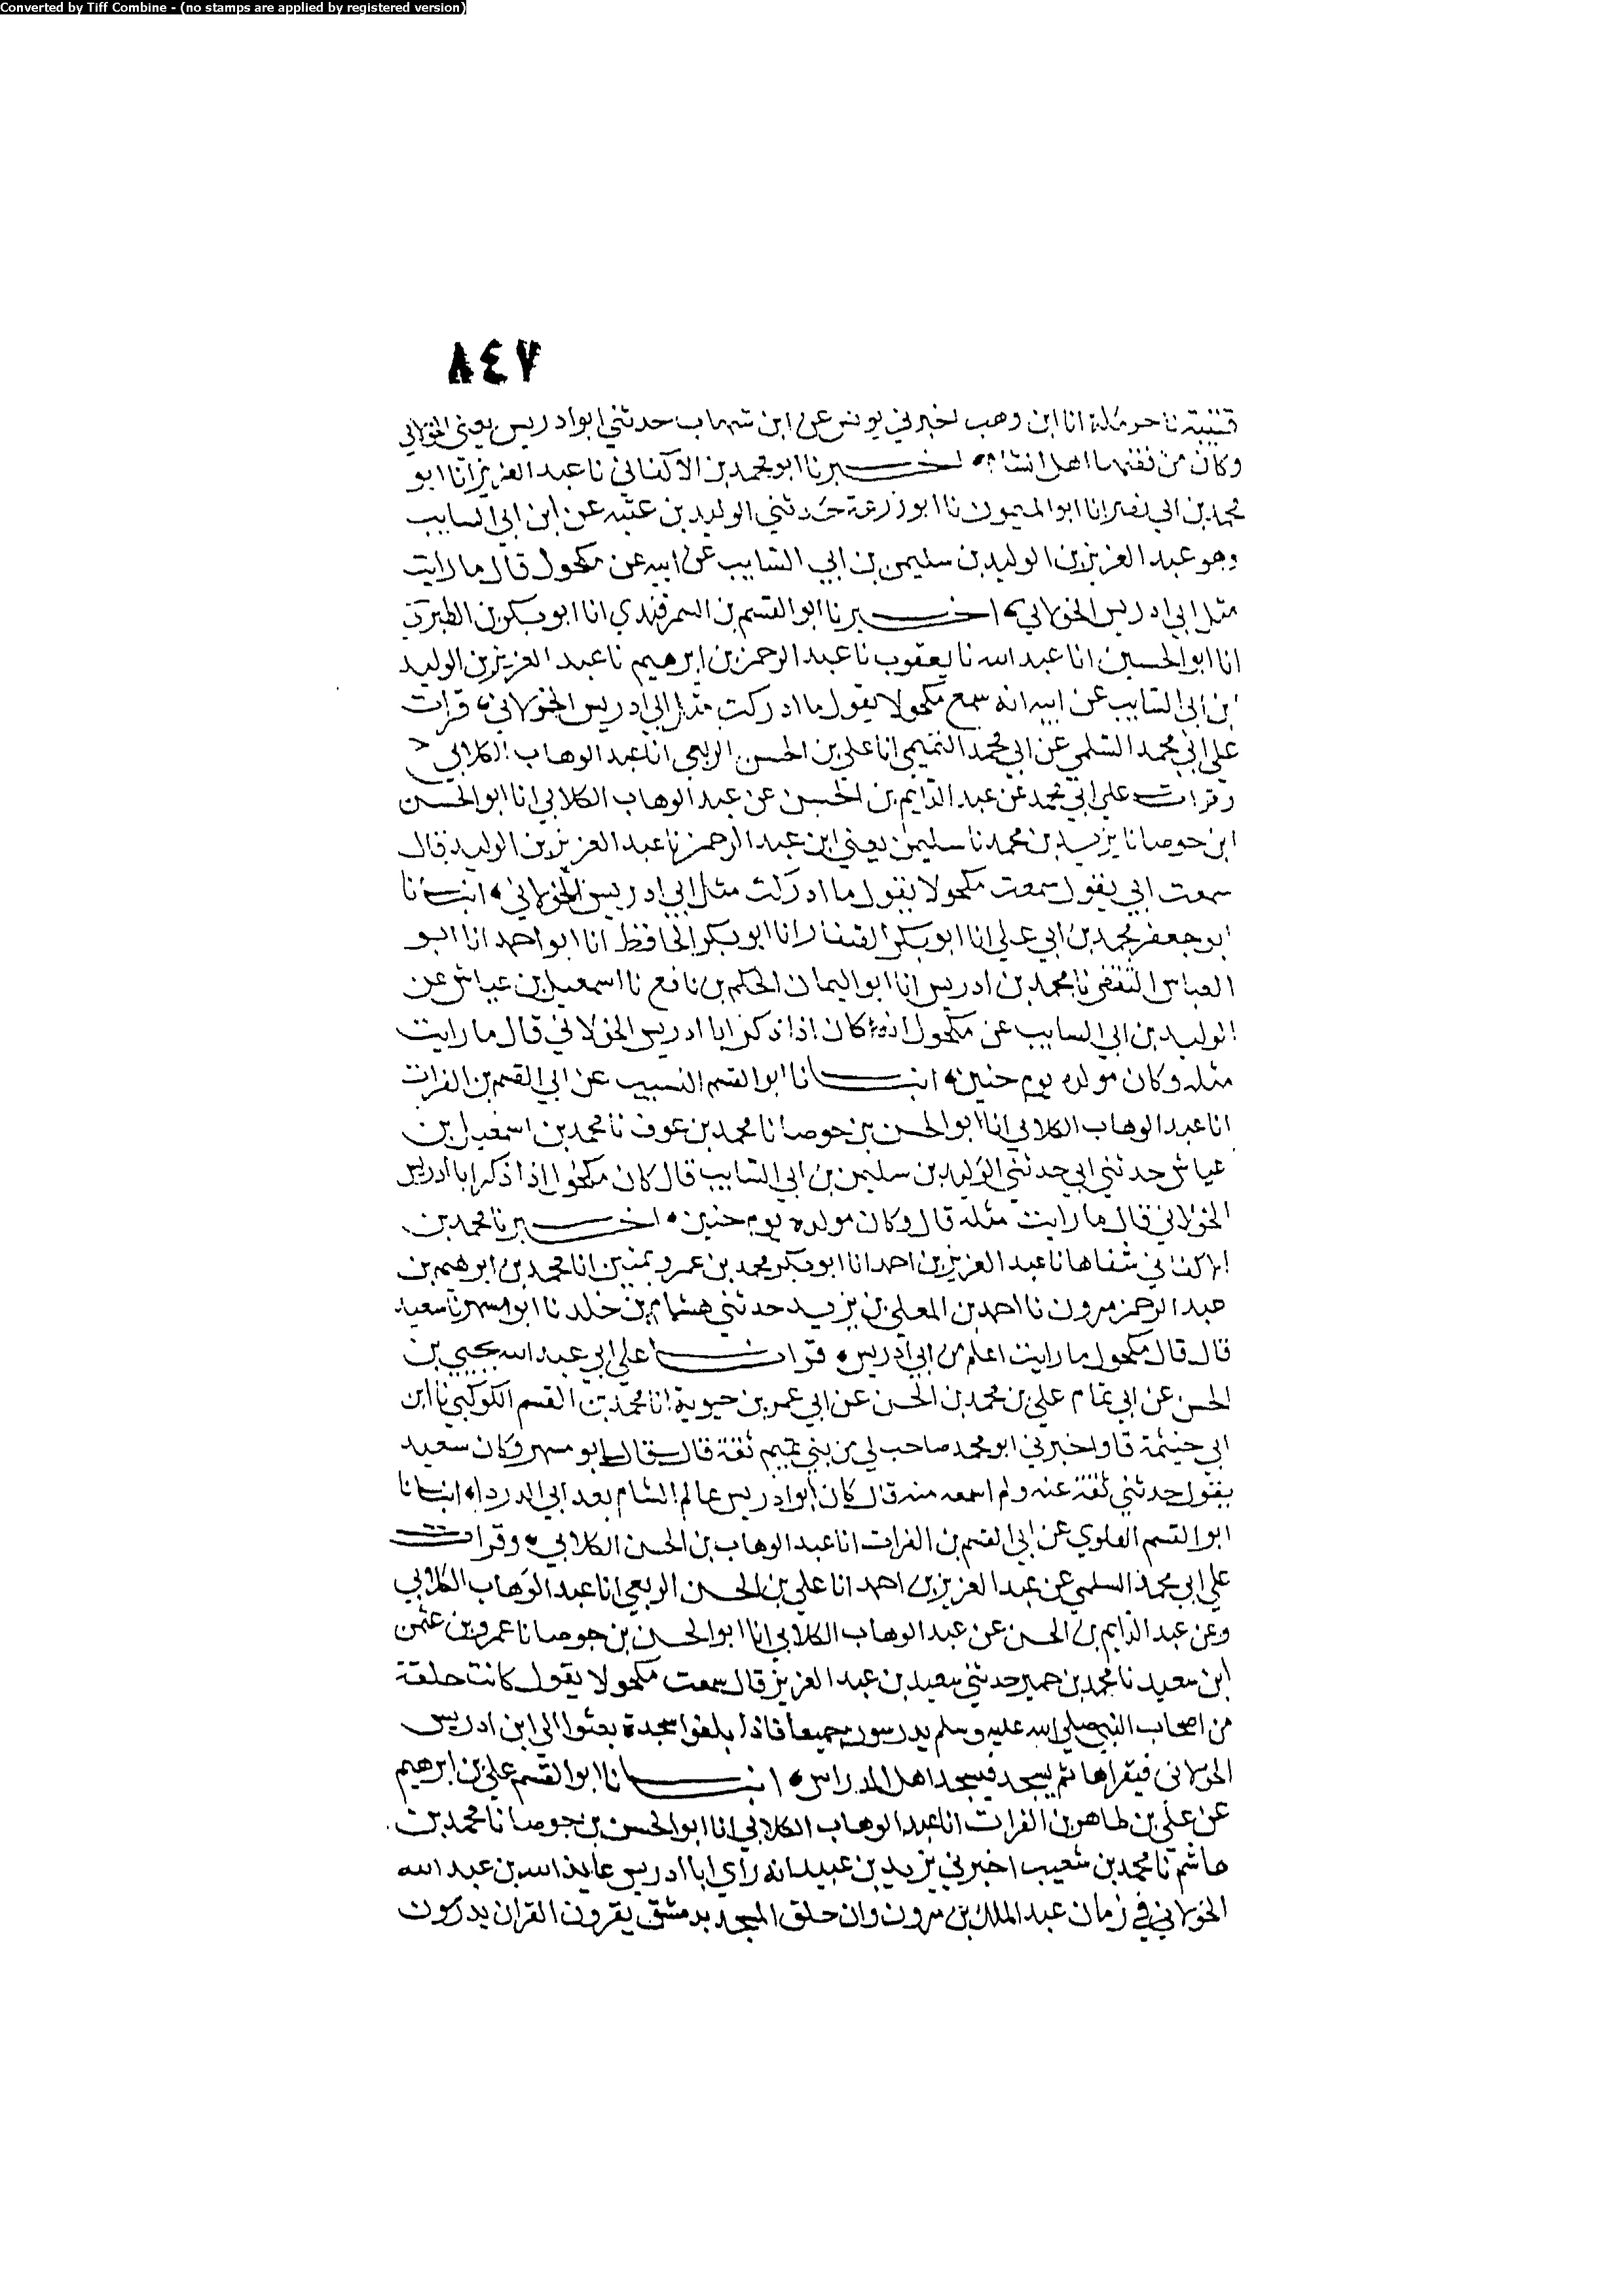 Converted by Tiff Combine - (no stamps are applied by registered version)
٨٤٧
قتيبة نا حرملة انا ابن وهب اخبرني يونس عن ابن شهاب حدثني ابو ادريس يعني الخولاني
وكان من فقهاء اهل الشام اخبرنا ابو محمد بن الاكفاني نا عبد العزيز انا ابو
محمد بن ابي نصر انا ابو الميمون نا ابو زرعة حدثني الوليد بن عتبه عن ابن ابي السايب
وهو عبد العزيز بن الوليد بن سليمن بن ابي السايب عن ابيه عن مكحول قال ما رايت
مثل ابي ادريس الخولاني اخبرنا ابو القسم بن السمرقندي انا ابو بكر بن الطبري
انا ابو الحسين انا عبد الله نا يعقوب نا عبد الرحمن بن ابرهيم نا عبد العزيز بن الوليد
ابن ابي السايب عن ابيه انه سمع مكحولا يقول ما ادركت مثل ابي ادريس الخولاني قرات
علي ابي محمد السلمي عن ابي محمد التميمي انا علي بن الحسن الربعي انا عبد الوهاب الكلابي ح
وقرات علي ابي محمد عن عبد الدايم بن الحسن عن عبد الوهاب الكلابي انا ابو الحسن
ابن جوصا نا يزيد بن محمد نا سليمن يعني ابن عبد الرحمن نا عبد العزيز بن الوليد قال
سمعت ابي يقول سمعت مكحولا يقول ما ادركت مثل ابي ادريس الخولاني انبانا
ابو جعفر محمد بن ابي علي انا ابو بكر الصفار انا ابو بكر الحافظ انا ابو احمد انا ابو
العباس الثقفي نا محمد بن ادريس انا ابو اليمان الحكم بن نافع نا اسمعيل بن عياش عن
الوليد بن ابي السايب عن مكحول انه كان اذا ذكر ابا ادريس الخولاني قال ما رايت
مثله وكان مولده يوم حنين انبانا ابو القسم النسيب عن ابي القسم بن الفرات
انا عبد الوهاب الكلابي انا ابو الحسن بن جوصا نا محمد بن عوف نا محمد بن اسمعيل بن
عياش حدثني ابي حدثني الوليد بن سليمن بن ابي السايب قال كان مكحول اذا ذكر ابا ادريس
الخولاني قال ما رايت مثله قال وكان مولده يوم حنين اخبرنا محمد بن
الاكفاني شفاها نا عبد العزيز بن احمد انا ابو بكر محمد بن عمرو بمنين انا محمد بن ابرهيم بن
عبد الرحمن مرون نا احمد بن المعلي بن يزيد حدثني هشام بن خلد نا ابو مسهر نا سعيد
قال قال مكحول ما رايت اعلم من ابي ادريس قرات علي ابي عبد الله يحيي بن
الحسن عن ابي تمام علي بن محمد بن الحسن عن ابي عمر بن حيوية انا محمد بن القسم الكوكبي نا ابن
ابي خيثمة قال واخبرني ابو محمد صاحب لي من بني تميم ثقة قال قال ابو مسهر وكان سعيد
يقول حدثني ثقة عنه ولم اسمعه منه قال كان ابو ادريس عالم الشام بعد ابي الدرداء انبانا
ابو القسم العلوي عن ابي القسم بن الفرات انا عبد الوهاب بن الحسن الكلابي وقرات
علي ابي محمد السلمي عن عبد العزيز بن احمد انا علي بن الحسن الربعي انا عبد الوهاب الكلابي
وعن عبد الدايم بن الحسن عن عبد الوهاب الكلابي انا ابو الحسن بن جوصا نا عمرو بن عثمن
ابن سعيد نا محمد بن حمير حدثني سعيد بن عبد العزيز قال سمعت مكحولا يقول كانت حلقة
من اصحاب النبي صلي الله عليه وسلم يدرسون جميعا فاذا بلغوا سجدة بعثوا الي ابن ادريس
الخولاني فيقراها ثم يسجد فيسجد اهل المدراس انبانا ابو القسم علي بن ابرهيم
عن علي بن طاهر بن الفرات انا عبد الوهاب الكلابي انا ابو الحسن بن جوصا نا محمد بن
هاشم نا محمد بن شعيب اخبرني يزيد بن عبيد انه راي ابا ادريس عايذ الله بن عبد الله
الخولاني في زمان عبد الملك بن مرون وان حلق المسجد بدمشق يقرون القران يدرسون